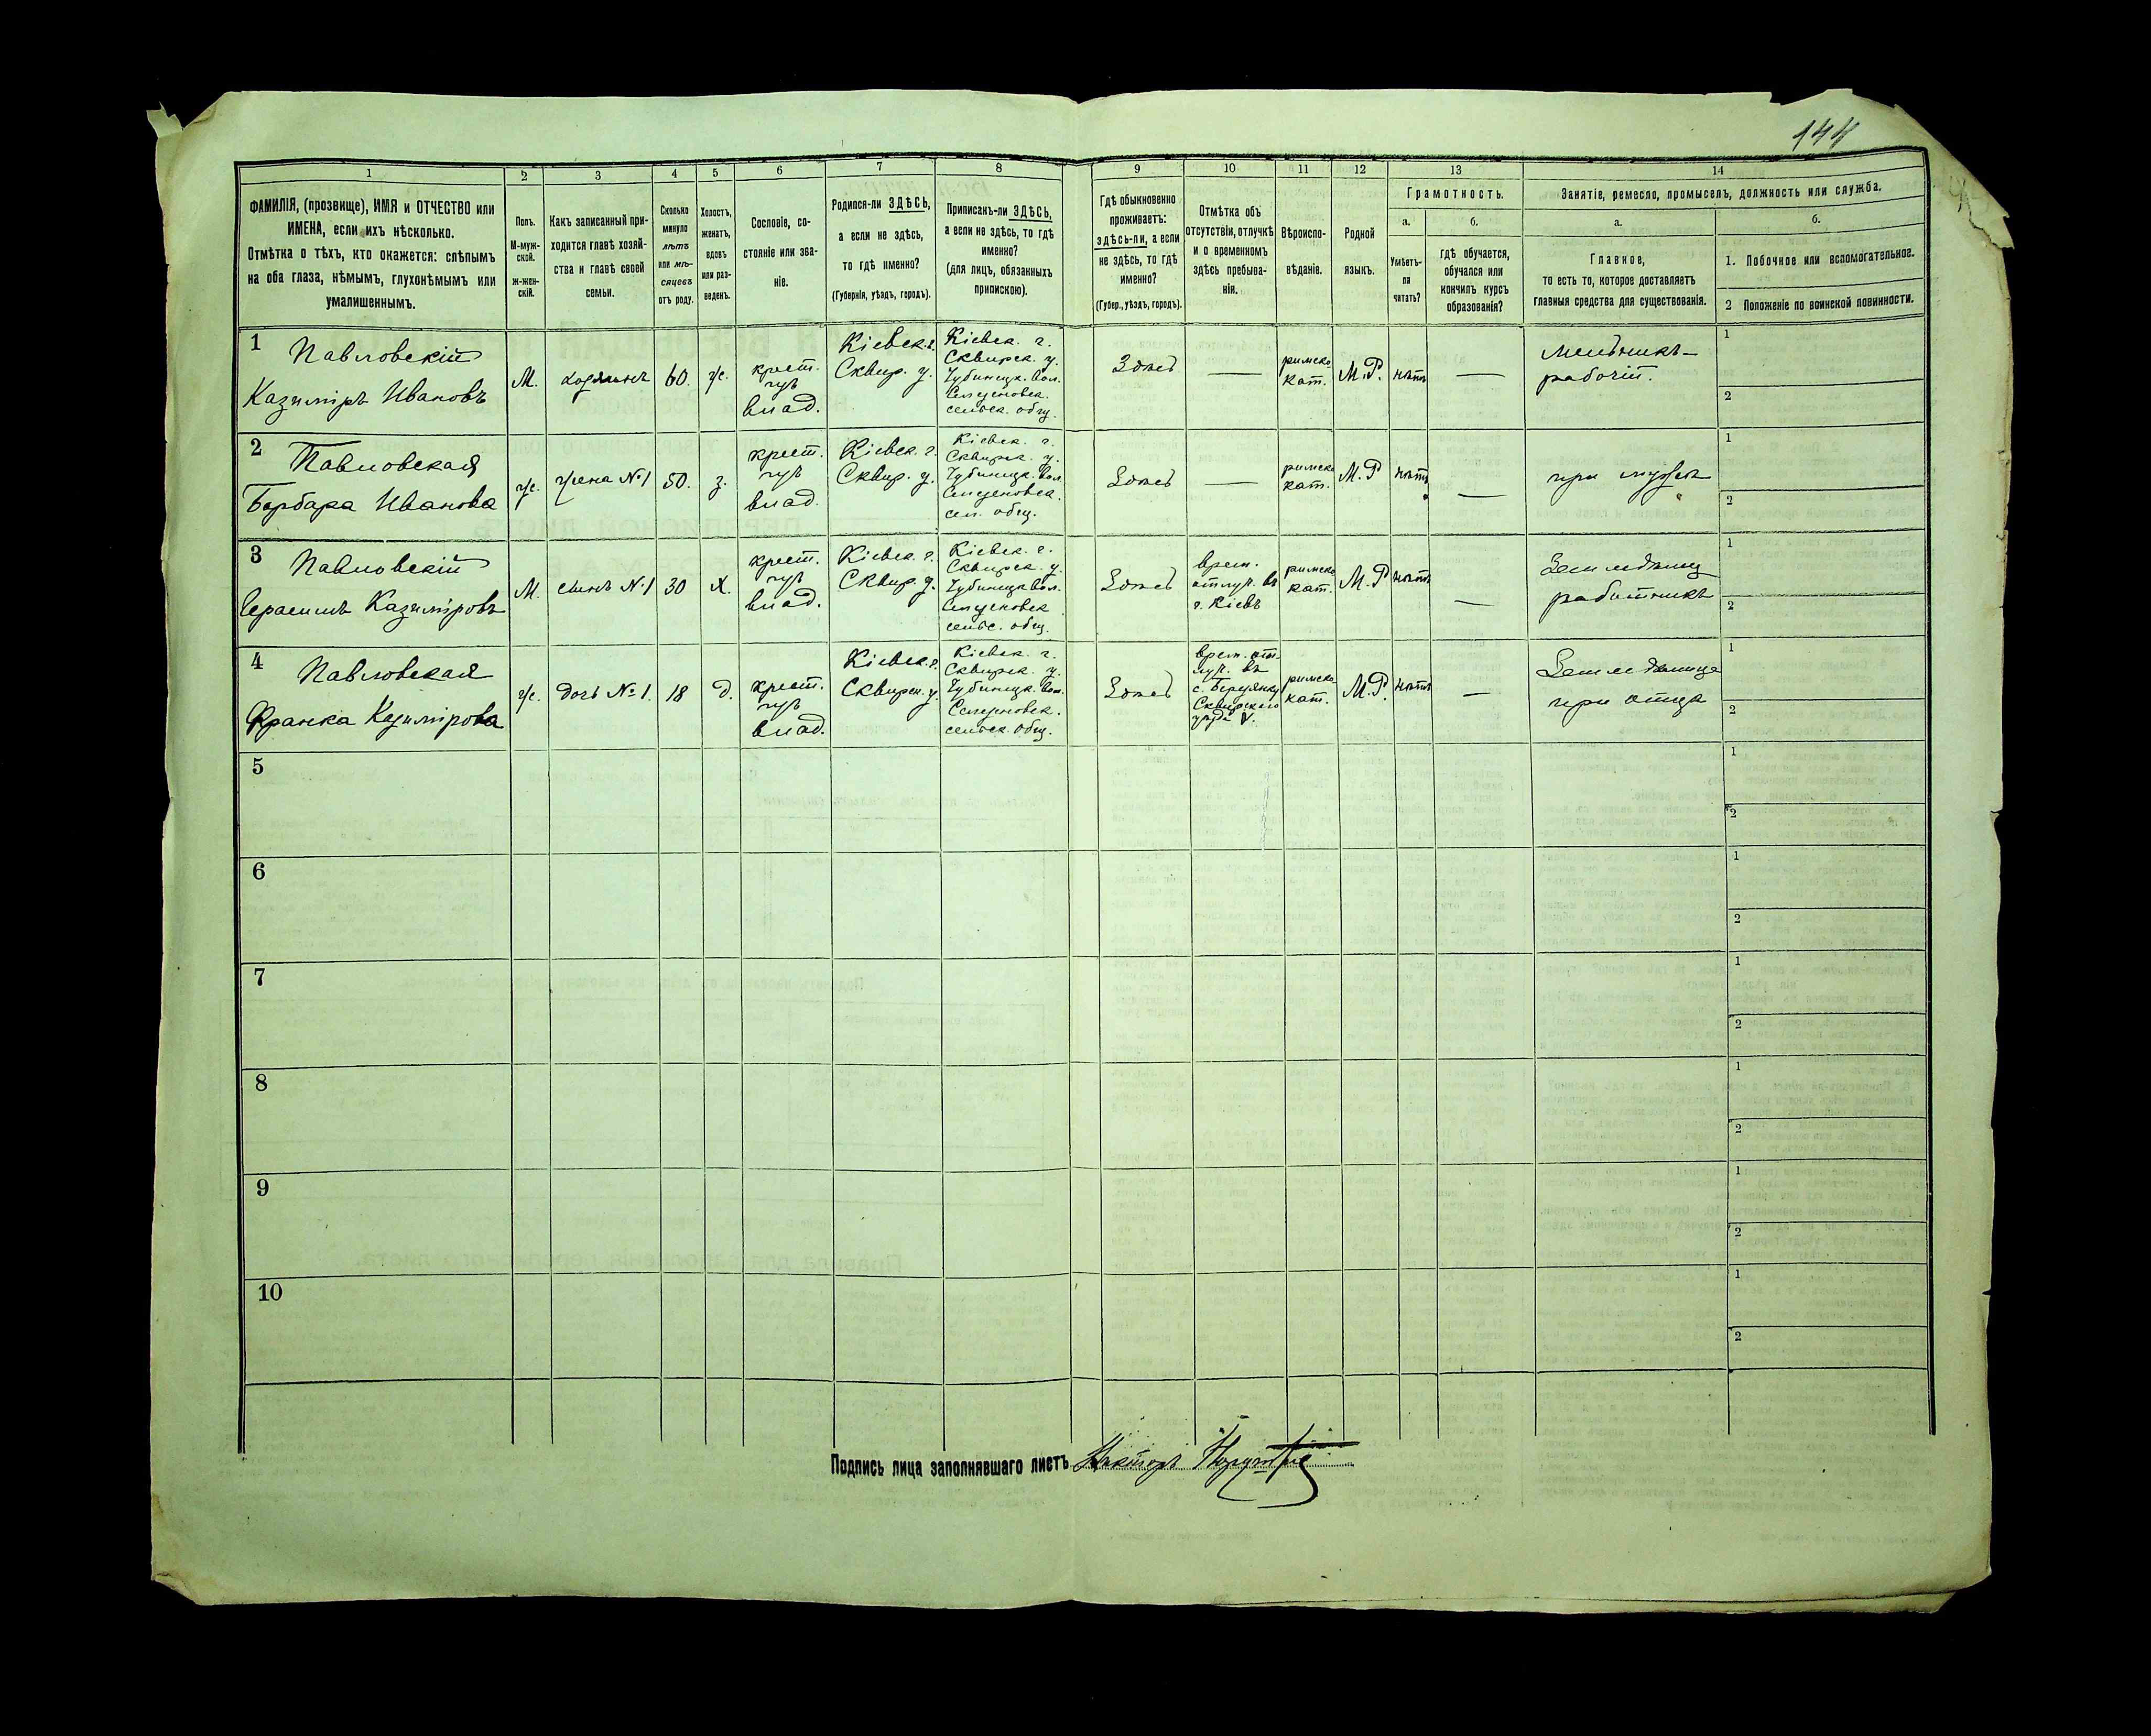 144
1 2 3 4 5 6 7 8 9 10 11 12 13 14
ФАМИЛІЯ, (прозвище), ИМЯ и ОТЧЕСТВО или
ИМЕНА, если ихъ нѣсколько.
Отмѣтка о тѣхъ, кто окажется: слѣпымъ
на оба глаза, нѣмымъ, глухонѣмымъ или
умалишеннымъ.
Полъ.
М-муж-
ской.
ж-жен-
скій.
Какъ записанный при-
ходится главѣ хозяй-
ства и главѣ своей
семьи.
Сколько
минуло
лѣтъ
или мѣ-
сяцевъ
отъ роду.
Холостъ,
женатъ,
вдовъ
или раз-
веденъ.
Сословіе, со-
стояніе или зва-
ніе.
Родился-ли ЗДѢСЬ,
а если не здѣсь,
то гдѣ именно?
(Губернія, уѣздъ, городъ).
Приписанъ-ли ЗДѢСЬ,
а если не здѣсь, то гдѣ
именно?
(для лицъ, обязанныхъ
припискою).
Гдѣ обыкновенно
проживаетъ:
здѣсь-ли, а если
не здѣсь, то гдѣ
именно?
(Губер., уѣздъ, городъ).
Отмѣтка объ
отсутствіи, отлучкѣ
и о временномъ
здѣсь пребыва-
ніи.
Вѣроиспо-
вѣданіе.
Родной
языкъ.
Грамотность.
а.
Умѣетъ-
ли
читать?
б.
гдѣ обучается,
обучался или
кончилъ курсъ
образованія?
Занятіе, ремесло, промыселъ, должность или служба.
а.
Главное,
то есть то, которое доставляетъ
главныя средства для существованія.
б.
1. Побочное или вспомогательное.
2 Положеніе по воинской повинности.
1
Павловскій
Казиміръ Ивановъ
М.
хозяинъ
60.
ж.
крест.
изъ
влад.
Кіевск. г.
Сквир. у.
Кіевск. г.
Сквирск. у.
Чубинецк. вол.
сельск. общ.
Здѣсь
—
римско-
кат.
М.Р.
нѣтъ
—
мельникъ—
рабочій.
1
2
2
Павловская
Барбара Иванова
ж.
жена №1
50.
з.
крест.
изъ
влад.
Кіевск. г.
Сквир. у.
Кіевск. г.
Сквирск. у.
Чубинецк. вол.
сел. общ.
Здѣсь
—
римско
кат.
М.Р
нѣтъ
—
при мужѣ
1
2
3
Павловскій
Герасимъ Казиміровъ
М.
сынъ №1
30
Х.
крест.
изъ
влад.
Кіевск. г.
Сквир. у.
Кіевск. г.
Сквирск. у.
Чубинецк вол.
сельс. общ.
Здѣсь
врем.
отлуч. въ
г. Кіевъ
римско
кат.
М.Р
нѣтъ
—
Земледѣлец
работникъ
1
2
4
Павловская
Франка Казимірова
ж.
дочь №1.
18
д.
крест.
изъ
влад.
Кіевск. г.
Сквирск. у.
Кіевск. г.
Сквирск. у.
Чубинецк. вол.
сельск. общ.
Здѣсь
врем. от-
луч. въ
с.
Сквирскаго
уѣзда
римско-
кат.
М.Р
нѣтъ
—
Земледѣлица
при отцѣ
1
2
5
1
2
6
1
2
7
1
2
8
1
2
9
1
2
10
1
2
Подпись лица заполнявшаго листъ